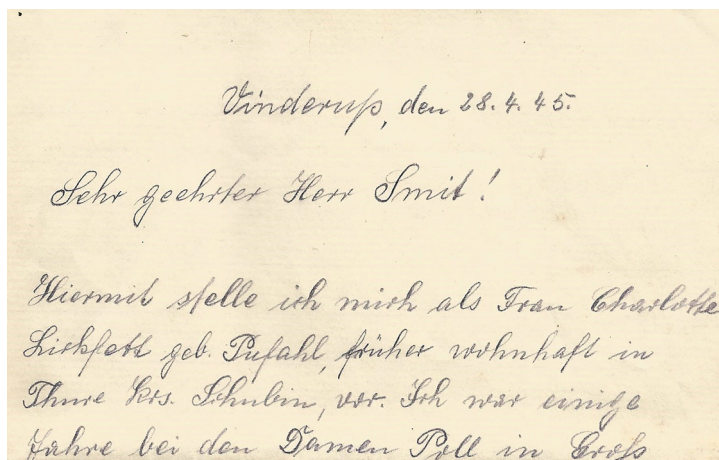 Vinderup, den 28.4.45.
Sehr geehrter Herr Smit!
Hiermit stelle ich mich als Frau Charlotte
Lirkfett geb. Pufahl, früher wohnhaft in
Thure Krs. Schubin, vor. Ich war einige
Jahre bei den Damen Poll in Groß